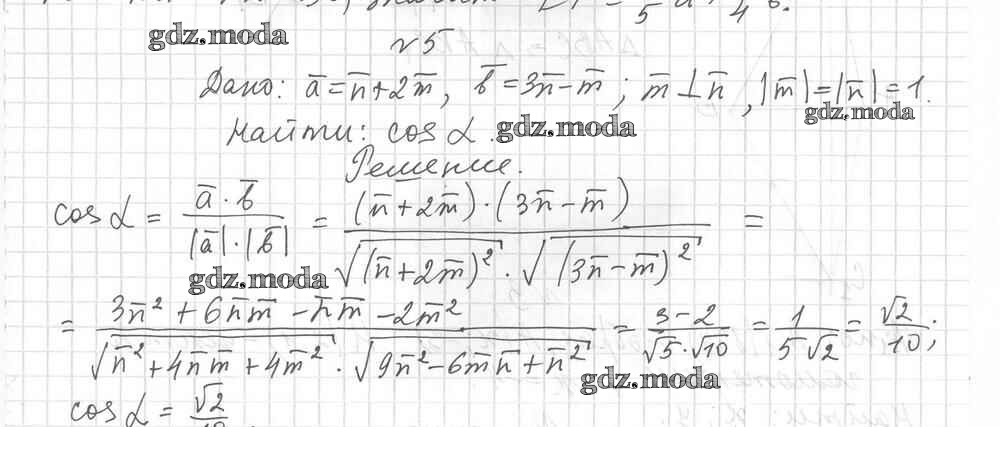 5 4 в.
gdz.moda
№5
Дано: a̅ = n̅ + 2m̅, b̅ = 3n̅ − m̅; m̅ ⊥ n̅, |m̅| = |n̅| = 1.
gdz.moda
Найти: cos α. gdz.moda
Решение.
cos α = (a̅ · b̅)/(|a̅| · |b̅|) = ((n̅ + 2m̅) · (3n̅ − m̅))/(√(n̅ + 2m̅)² · √(3n̅ − m̅)²) =
gdz.moda
= (3n̅² + 6n̅m̅ − n̅m̅ − 2m̅²)/(√(n̅² + 4n̅m̅ + 4m̅²) · √(9n̅² − 6m̅n̅ + n̅²)) = (3 − 2)/(√5 · √10) = 1/(5√2) = √2/10;
gdz.moda
cos α = √2/10